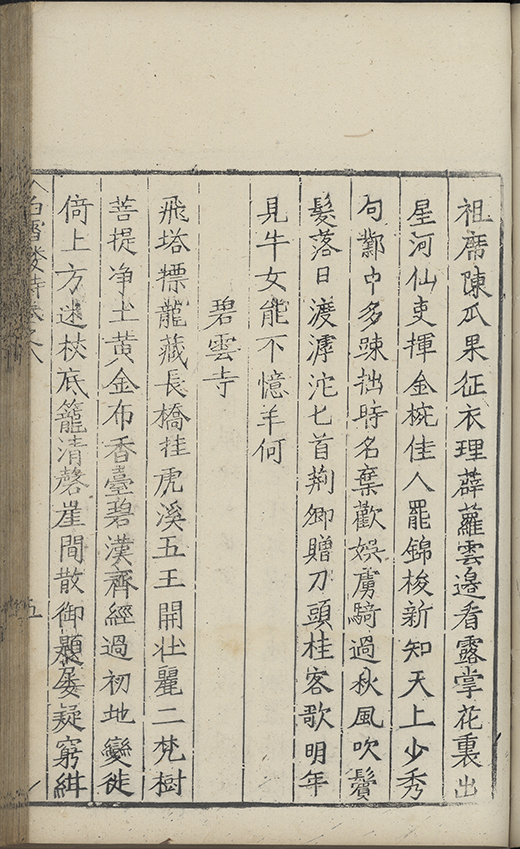 祖席陳瓜果征衣理薜蘿雲邊看露掌花裏出
星河仙吏揮金椀佳人罷錦梭新知天上少秀
句鄴中多踈拙時名棄歡娛虜騎過秋風吹鬢
髮落日渡滹沱匕首荆卿贈刀頭桂客歌明年
見牛女能不憶羊何
碧雲寺
飛塔標龍藏長橋挂虎溪五王開壯麗二梵樹
菩提净土黄金布香臺碧漢齊經過初地變徙
倚上方迷松底籠清磬崖間散御題屢疑窮紺
樓詩卷之八
五